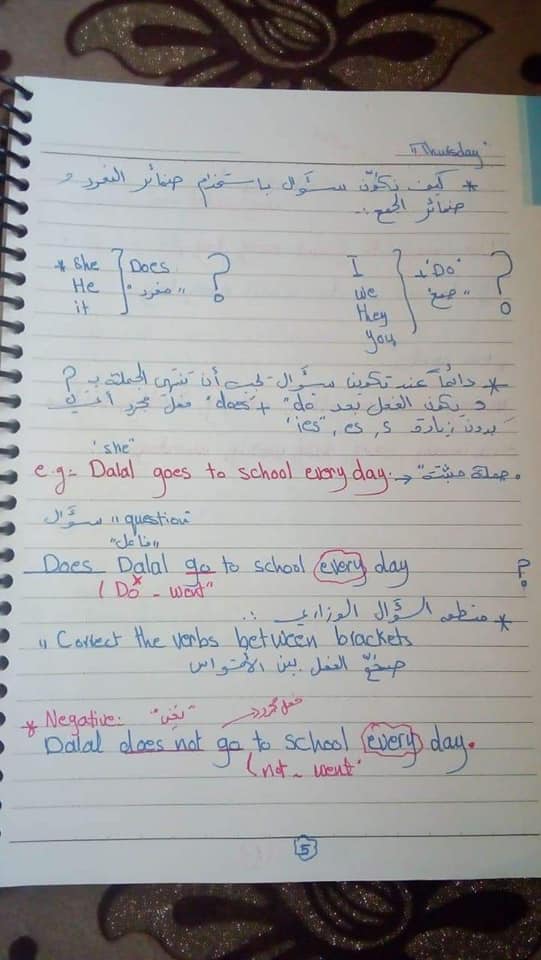 "Thursday"
* كيف نكوّن سؤال باستخدام ضمائر المفرد و
ضمائر الجمع :-
* She
He
it
Does
"مفرد"
?
I
we
they
you
+ "Do"
"جمع"
?
* دائماً عند تكوين سؤال يجب أن تنتهي الجملة بـ ?
و يكون الفعل بعد "do" + "does" فعل مجرد أي
بدون زيادة s, es, "ies"
"she"
e.g:- Dalal goes to school every day. → "جملة مثبتة"
سؤال "question"
"فاعل"
Does Dalal go to school every day ?
(Do - went"
* منطوق السؤال الوزاري :.
" Correct the verbs between brackets
صحّح الفعل بين الأقواس
* Negative: "نفي" فعل مجرد
Dalal does not go to school every day.
(not - went"
5